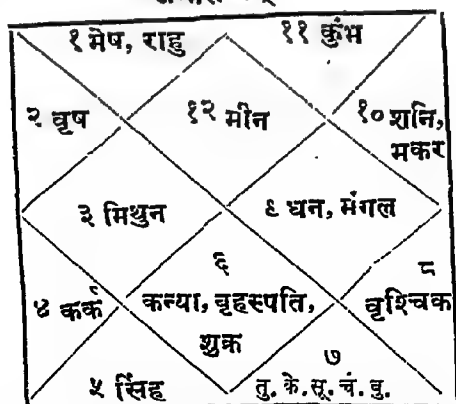 १ मेष, राहु
११ कुंभ
२ वृष
१२ मीन
१० शनि,
मकर
३ मिथुन
९ धन, मंगल
६
कन्या, बृहस्पति,
शुक्र
४ कर्क
८
वृश्चिक
५ सिंह
७
तु. के. सू. चं. बु.